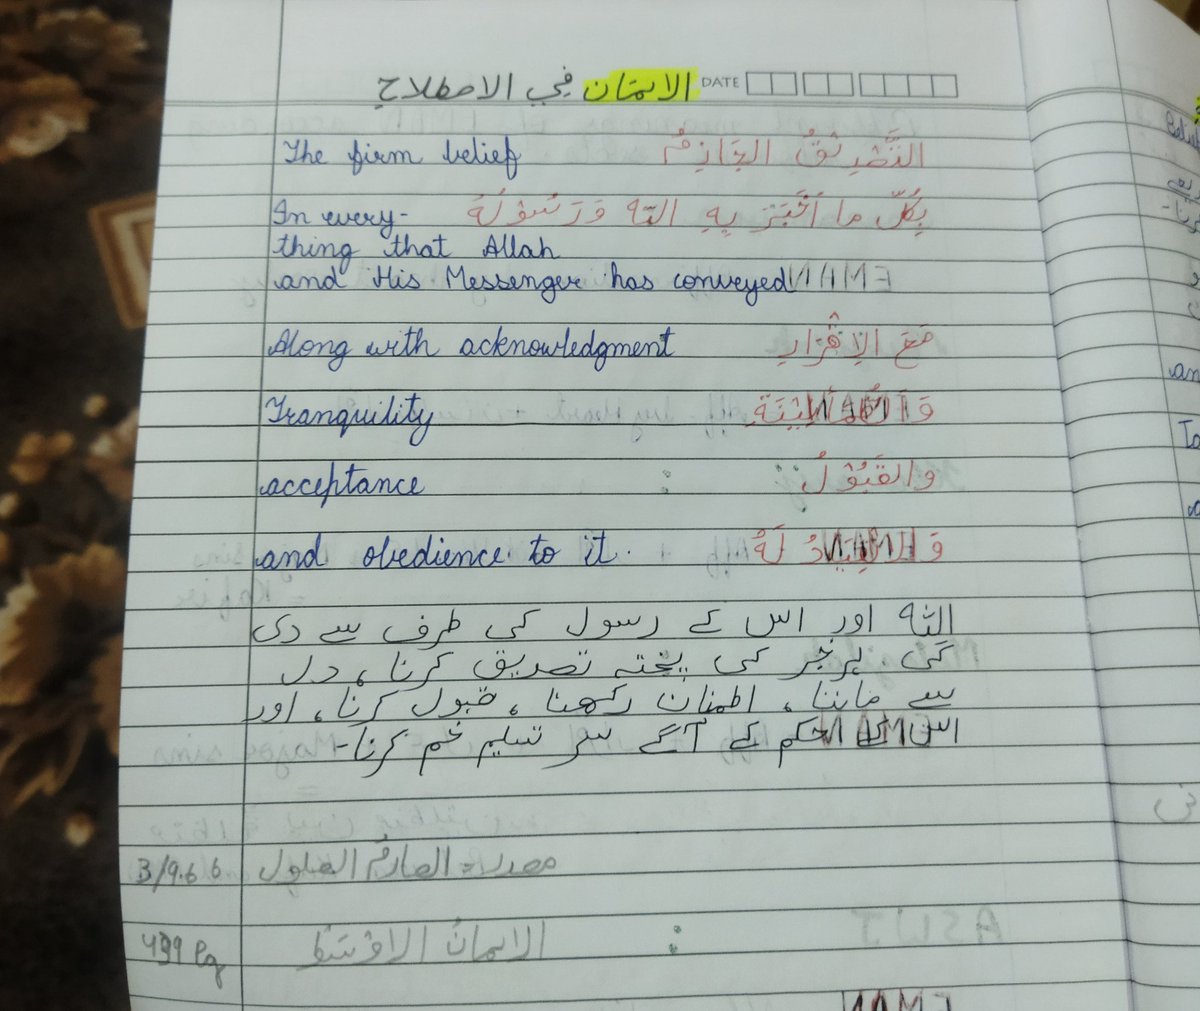 الايمان في الاصطلاح
DATE
The firm belief التَّصْدِيْقُ الجَازِمُ
In every- بِكُلِّ ما أَخْبَرَ بِهِ اللّه وَرَسُوْلُهُ
thing that Allah
and His Messenger has conveyed
Along with acknowledgment مَعَ الإِقْرَارِ
Tranquility
acceptance والقَبُوْلُ
and obedience to it. لَهُ
اللّه اور اس کے رسول کی طرف سے دی
گئی ہر خبر کی پختہ تصدیق کرنا، دل
سے ماننا، اطمنان رکھنا، قبول کرنا، اور
اس کے حکم کے آگے سر تسلیم خم کرنا-
3/9.6 6 مصدر= الصارمُ المسلول
439 Pg الايمانُ الاوْسَط